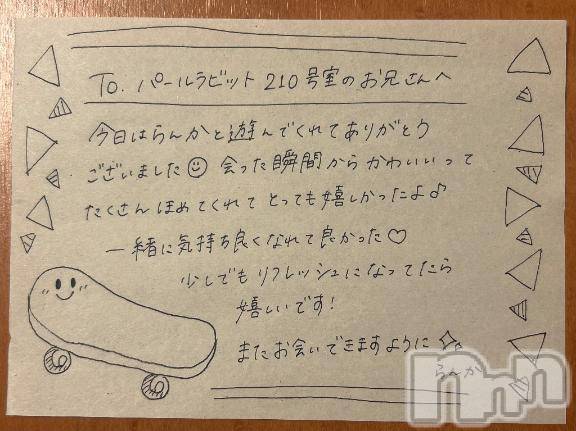 To. パールラビット 210号室のお兄さんへ
今日はらんかと遊んでくれてありがとう
ございました☺ 会った瞬間からかわいいって
たくさんほめてくれてとっても嬉しかったよ♪
一緒に気持ち良くなれて良かった♡
少しでもリフレッシュになってたら
嬉しいです!
またお会いできますように✧
らんか